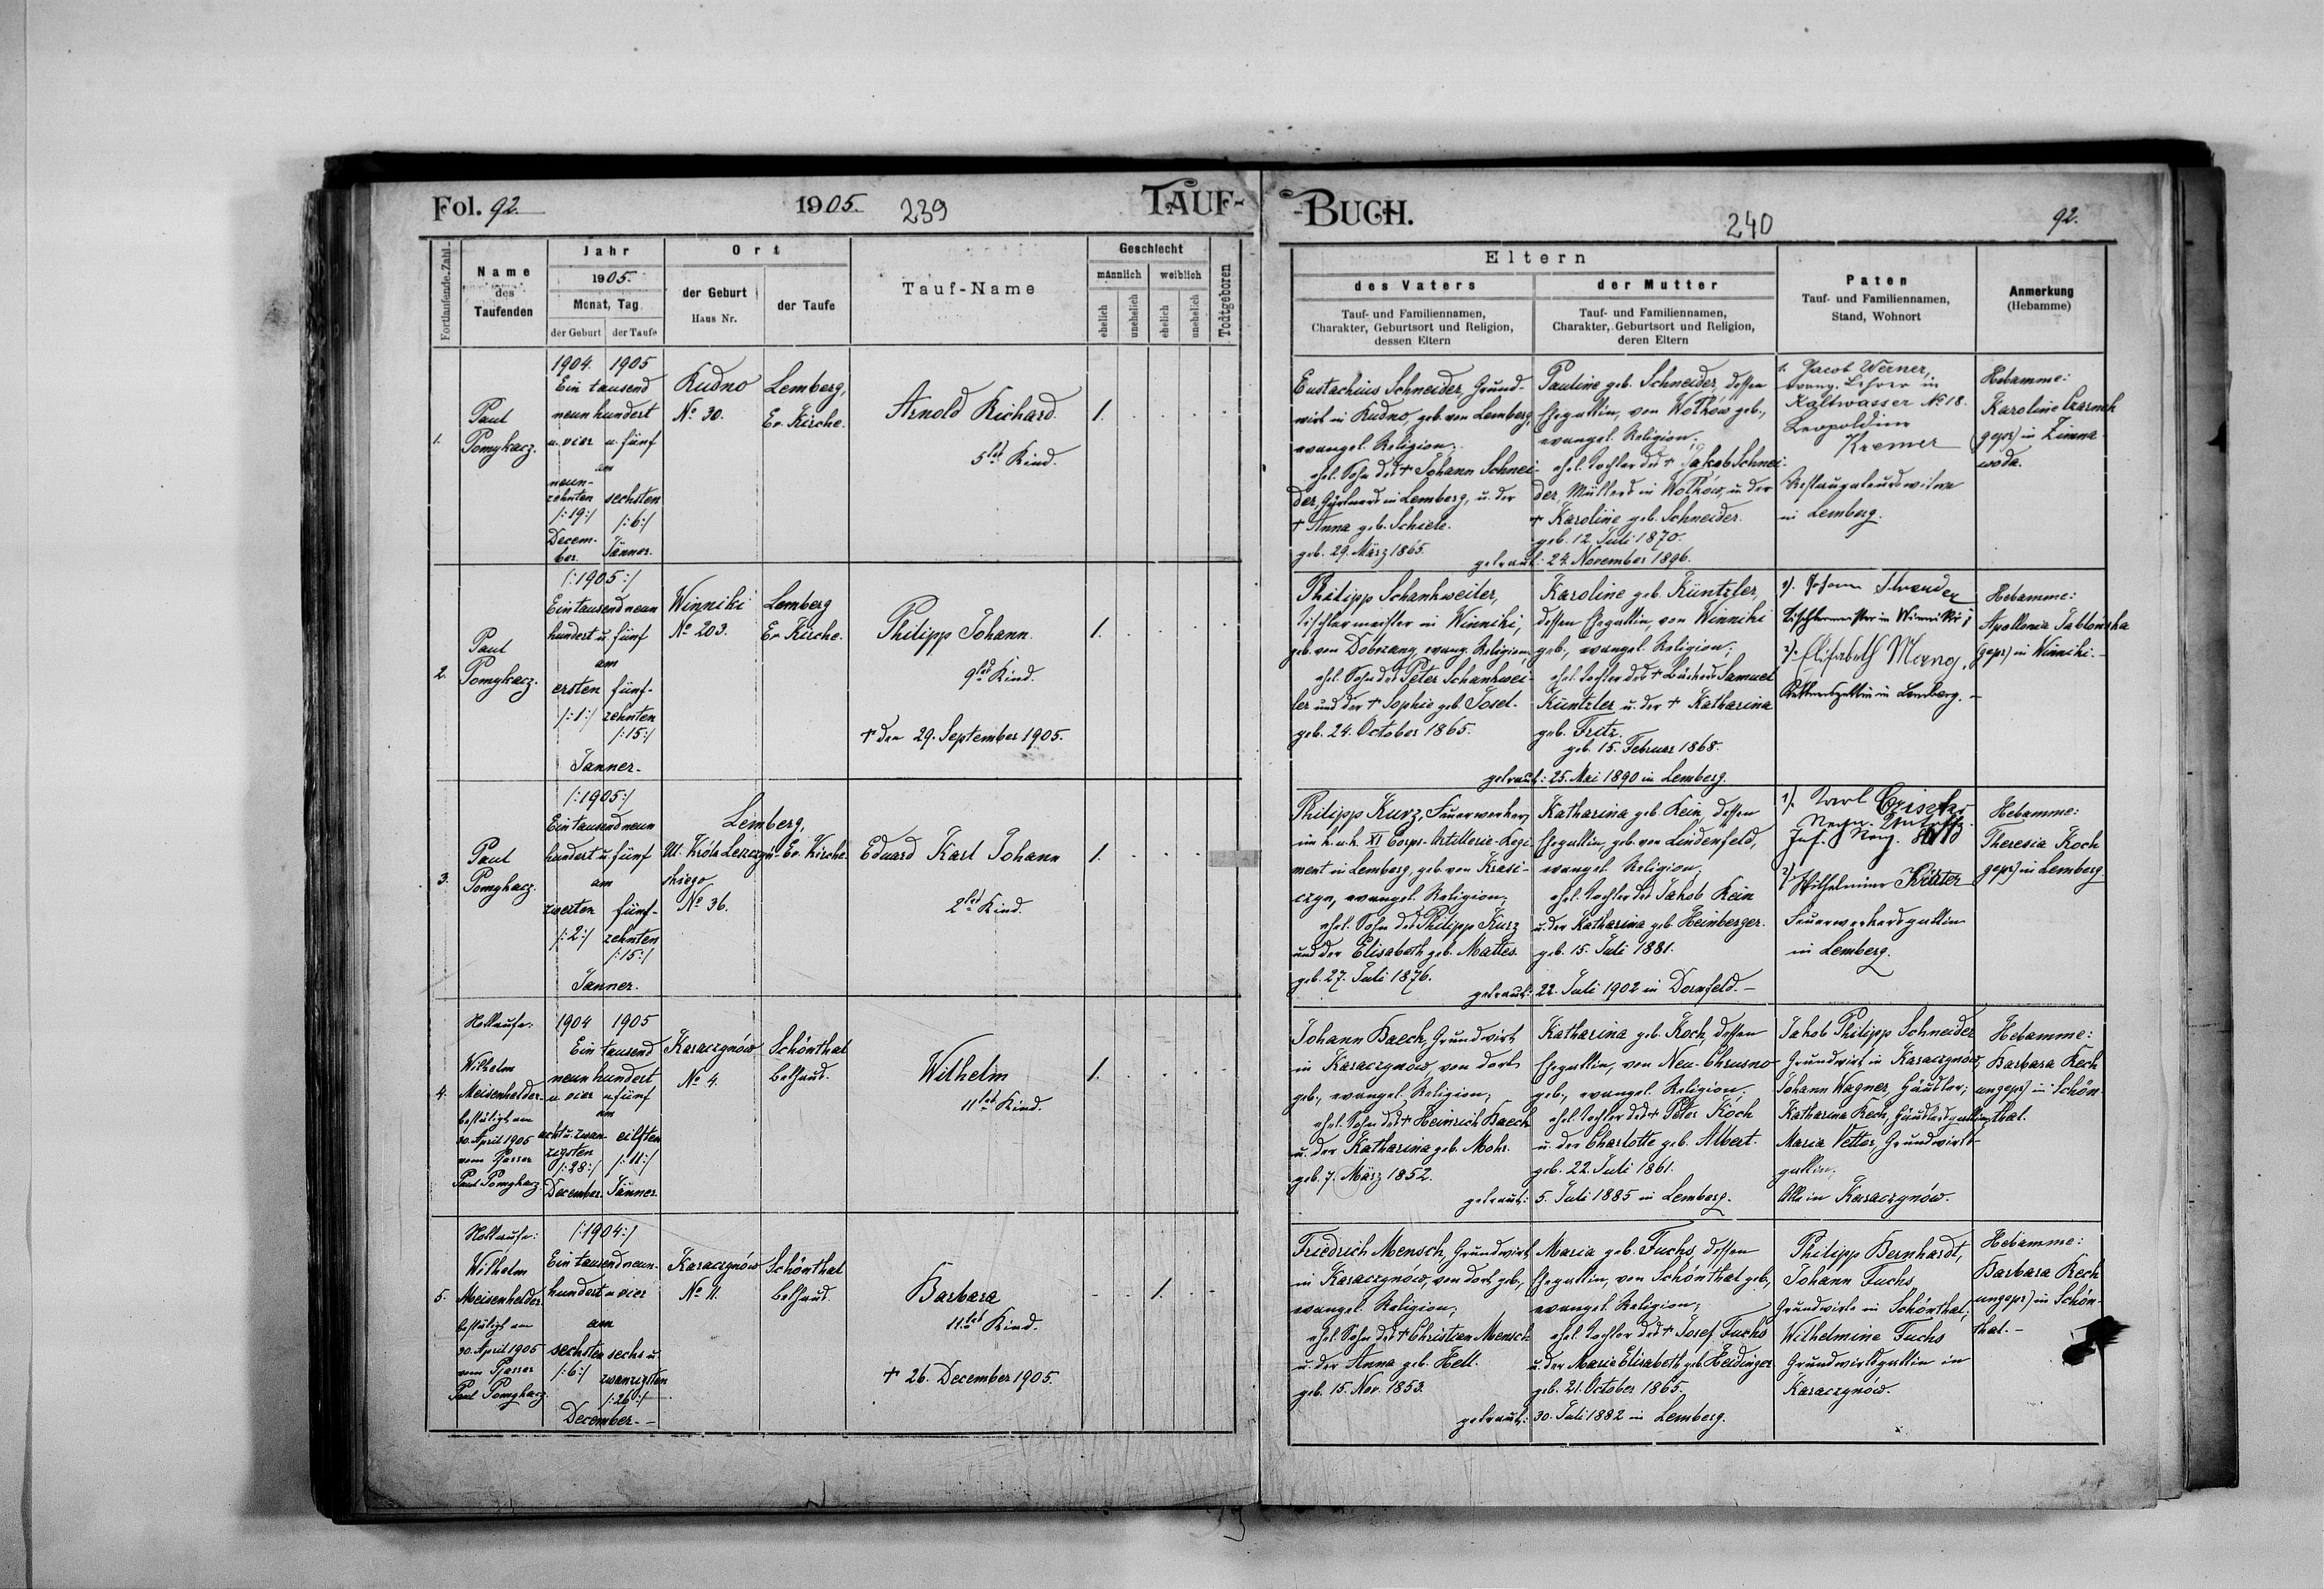 Fol. 92.
1905.
239
TAUF-
-BUCH.
240
92.
Fortlaufende-Zahl.
Name
des
Taufenden
Jahr
1905.
Monat, Tag
der Geburt
der Taufe
Ort
der Geburt
Haus Nr.
der Taufe
Tauf-Name
Geschlecht
männlich
weiblich
ehelich
unehelich
ehelich
unehelich
Todtgeboren
Eltern
des Vaters
Tauf- und Familiennamen,
Charakter, Geburtsort und Religion,
dessen Eltern
der Mutter
Tauf- und Familiennamen,
Charakter, Geburtsort und Religion,
deren Eltern
Paten
Tauf- und Familiennamen,
Stand, Wohnort
Anmerkung
(Hebamme)
1.
Paul
Pomykacz.
1904. 1905
Ein tausend
neun hundert
u. vier u. fünf
am
neun-
zehnten sechsten
/:19:/ /:6:/
Decem-
ber. Jänner.
Rudno
No 30.
Lemberg,
Ev. Kirche.
Arnold Richard
5tes Kind.
1.
Eustachius Schneider, Grund-
wirt in Rudno, geb. von Lemberg,
evangel. Religion;
ehel. Sohn des † Johann Schnei-
der, Gärtners in Lemberg, u. der
† Anna geb. Schiele.
geb. 29. März 1865.
Pauline geb. Schneider, dessen
Ehegattin, von Wołków geb.,
evangel. Religion;
ehel. Tochter des † Jakob Schnei-
der, Müllers in Wołków, u. der
† Karoline geb. Schneider.
geb. 12. Juli 1870.
getraut: 24. November 1896.
1. Jacob Werner,
evang. Lehrer in
Kaltwasser No 18.
Leopoldine
Kremer
Restaurateurswitwe
in Lemberg.
Hebamme:
Karoline Czarnek
(gepr) in Zimna-
woda.
2.
Paul
Pomykacz.
/:1905:/
Ein tausend neun
hundert u. fünf
am
ersten fünf-
/:1:/ zehnten
/:15:/
Jänner.
Winniki
No 203.
Lemberg
Ev. Kirche.
Philipp Johann
9tes Kind.
† den 29. September 1905.
1.
Philipp Schankweiler,
Tischlermeister in Winniki,
geb. von Dobrzany, evang. Religion;
ehel. Sohn des Peter Schankwei-
ler und der † Sophie geb. Josel.
geb. 24. October 1865.
Karoline geb. Küntzler,
dessen Ehegattin, von Winniki
geb., evangel. Religion;
ehel. Tochter des † Bäckers Samuel
Küntzler u. der † Katharina
geb. Fritz.
geb. 15. Februar 1868.
getraut: 25. Mai 1890 in Lemberg.
1). Johann
Tischlermeister in Winniki;
2). Elisabeth
in Lemberg.
Hebamme:
Apollonia Jablonska
(gepr) in Winniki.
3.
Paul
Pomykacz.
/:1905:/
Ein tausend neun
hundert u. fünf
am
zweiten fünf-
/:2:/ zehnten
/:15:/
Jänner.
Lemberg,
Ul. Króla Leszczyń-
skiego
No 36.
Ev. Kirche.
Eduard Karl Johann
2tes Kind.
1.
Philipp Kurz, Feuerwerker
im k. u. k. XI Corps-Artillerie-Regi-
ment in Lemberg, geb. von Krasi-
czyn, evangel. Religion;
ehel. Sohn des Philipp Kurz
und der Elisabeth geb. Mattes.
geb. 27. Juli 1876.
Katharina geb. Kein, dessen
Ehegattin, geb. von Lindenfeld,
evangel. Religion;
ehel. Tochter des Jakob Kein
u. der Katharina geb. Heinberger.
geb. 15. Juli 1881.
getraut: 22. Juli 1902 in Dornfeld.
1). Karl
2)
Wilhelmine
Feuerwerkersgattin
in Lemberg.
Hebamme:
Theresia Koch
gepr) in Lemberg
4.
Nottaufe:
Wilhelm
Meisenhelder.
bestätigt am
30. April 1905
vom Pfarrer
Paul Pomykacz
1904 1905
Ein tausend
neun hundert
u. vier u. fünf
am
acht u. zwan- eilften
zigsten
/:28:/ /:11:/
December. Jänner.
Karaczynów
No 4.
Schönthal
Bethaus.
Wilhelm
11tes Kind.
1.
Johann Baech, Grundwirt
in Karaczynów, von dort
geb., evangel. Religion;
ehel. Sohn des † Heinrich Baech
u. der Katharina geb. Mohr.
geb. 7. März 1852.
Katharina geb. Koch, dessen
Ehegattin, von Neu-Chrusno
geb., evangel. Religion;
ehel. Tochter des † Peter Koch
u. der Charlotte geb. Albert.
geb. 22. Juli 1861.
getraut: 5. Juli 1885 in Lemberg.
Jakob Philipp Schneider
Grundwirt in Karaczynów,
Johann Wagner, Häusler;
Katharina Kech, Häuslersgattin,
Maria Vetter, Grundwirts-
gattin;
Alle in Karaczynów.
Hebamme:
Barbara Kech
ungepr) in Schön-
thal.
5.
Nottaufe:
Wilhelm
Meisenhelder.
bestätigt am
30. April 1905
vom Pfarrer
Paul Pomykacz.
/:1904:/
Ein tausend neun-
hundert u. vier
am
sechsten sechs u.
/:6:/ zwanzigsten
/:26:/
December.
Karaczynów
No 11.
Schönthal
Bethaus.
Barbara
11tes Kind.
† 26. December 1905.
1.
Friedrich Mensch, Grundwirt
in Karaczynów, von dort geb.,
evangel. Religion;
ehel. Sohn des † Christian Mensch
u. der Anna geb. Hell.
geb. 15. Nov. 1853.
Maria geb. Fuchs, dessen
Ehegattin, von Schönthal geb.,
evangel. Religion;
ehel. Tochter des † Josef Fuchs
u. der Maria Elisabeth geb. Heidinger
geb. 21. October 1865.
getraut: 30. Juli 1882 in Lemberg.
Philipp Bernhardt,
Johann Fuchs,
Grundwirte in Schönthal;
Wilhelmine Fuchs
Grundwirtsgattin in
Karaczynów.
Hebamme:
Barbara Kech
ungepr) in Schön-
thal.